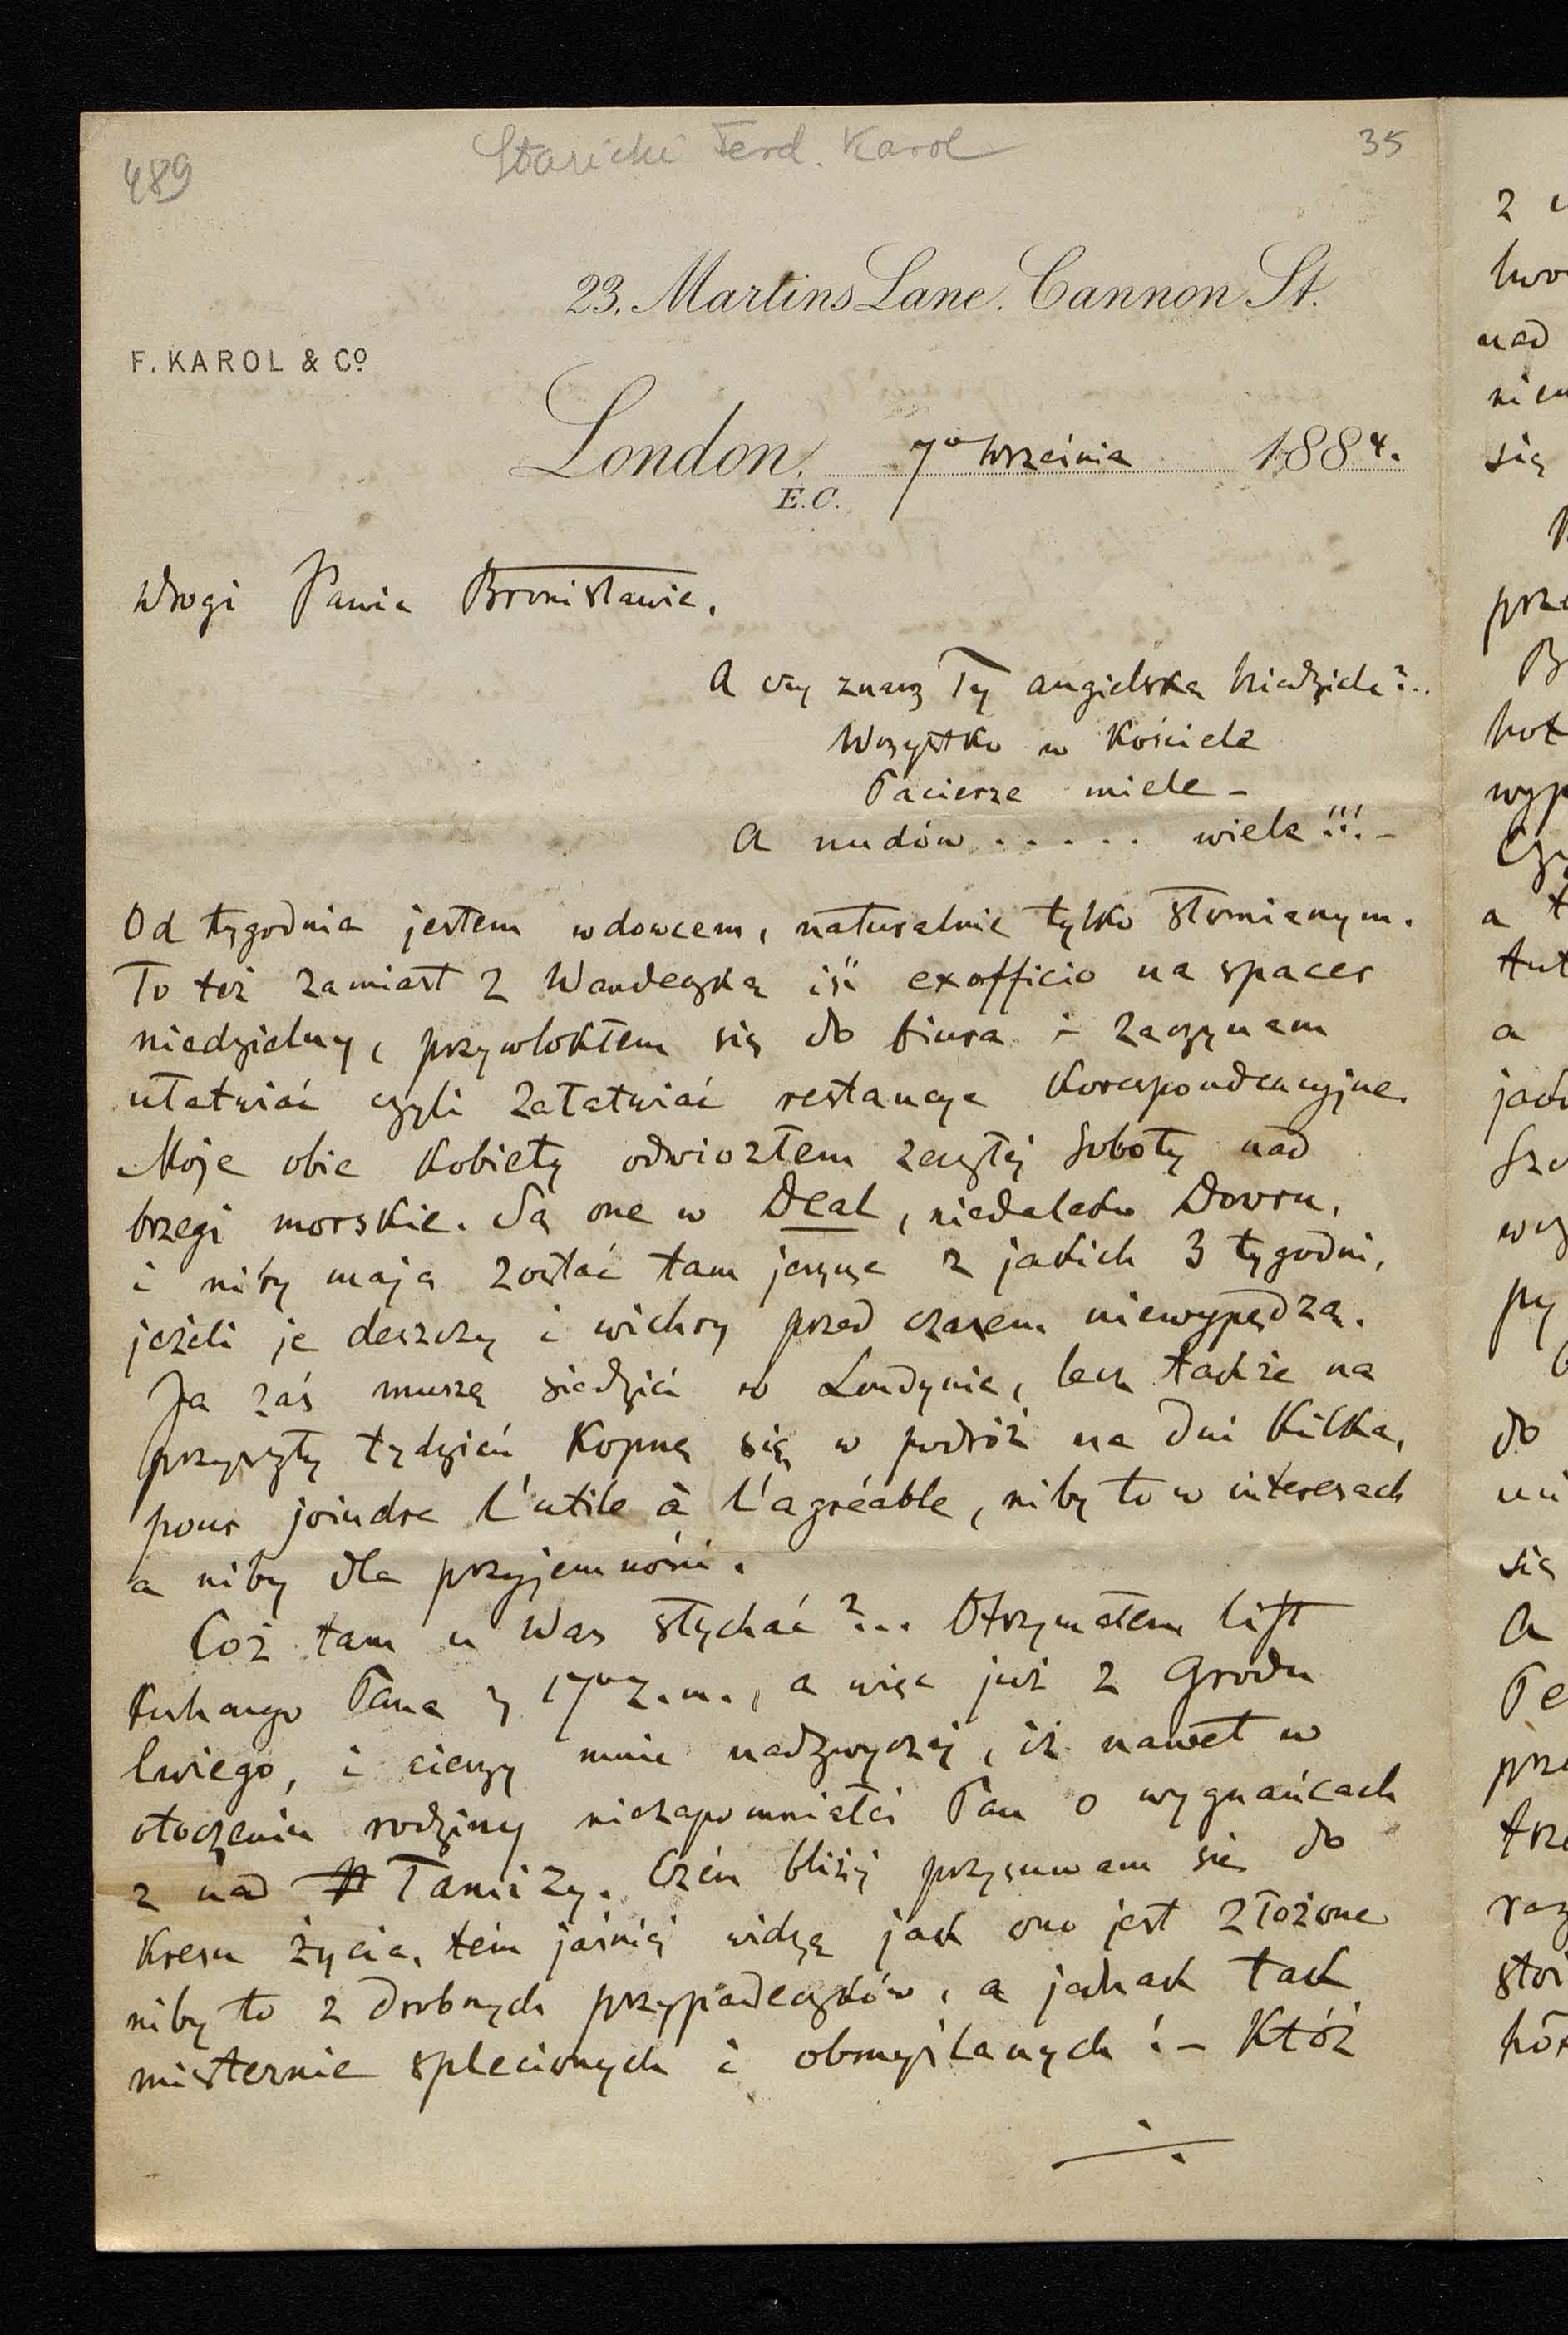 489
Starichi Ferd. Karol
35
23, Martins Lane. Cannon St.
F. KAROL & Co
London, 7o września 1884.
E.C.
Drogi Panie Bronisławie,
A czy znasz Ty angielską niedzielę?..
Wszystko w Kościele
Pacierze miele –
A nudów..... wiele!!! –
Od tygodnia jestem wdowcem, naturalnie tylko słomianym.
To też zamiast z Wandeczką iść exofficio na spacer
niedzielny, przywlokłem się do biura i zaczynam
ułatwiać czyli załatwiać restancye korespondencyjne.
Moje obie Kobiety odwiozłem zeszłéj Soboty nad
brzegi morskie. Są one w Deal, niedaleko Dovru,
i niby mają zostać tam jeszcze z jakich 3 tygodni,
jeżeli je deszczy i wichry przed czasem niewypędzą.
Ja zaś muszę siedzieć w Londynie, lecz także na
przyszły tydzień Kopnę się w podróż na dni Kilka,
pour joindre l'utile à l'agréable, niby to w interesach
a niby dla przyjemności.
Cóż tam u Was słychać?... Otrzymałem list
Kochanego Pana z 17o z.m., a więc już z Grodu
lwiego, i cieszy mnie nadzwyczaj, iż nawet w
otoczeniu rodziny niezapomniałeś Pan o wygnańcach
z nad Tamizy. Czém bliżéj przysuwam się do
Kresu życia, tém jaśniéj widzę jak ono jest złożone
niby to z drobnych przypadeczków, a jednak tak
misternie splecionych i obmyślanych! – Któż
z
two
nad
się
prze
hot
wyp
a
tut
a
py
do
się
A
Pe
prz
trze
raz
stoi